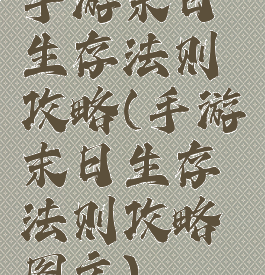 手游末日
生存法则
攻略(手游
末日生存
法则攻略
图文)